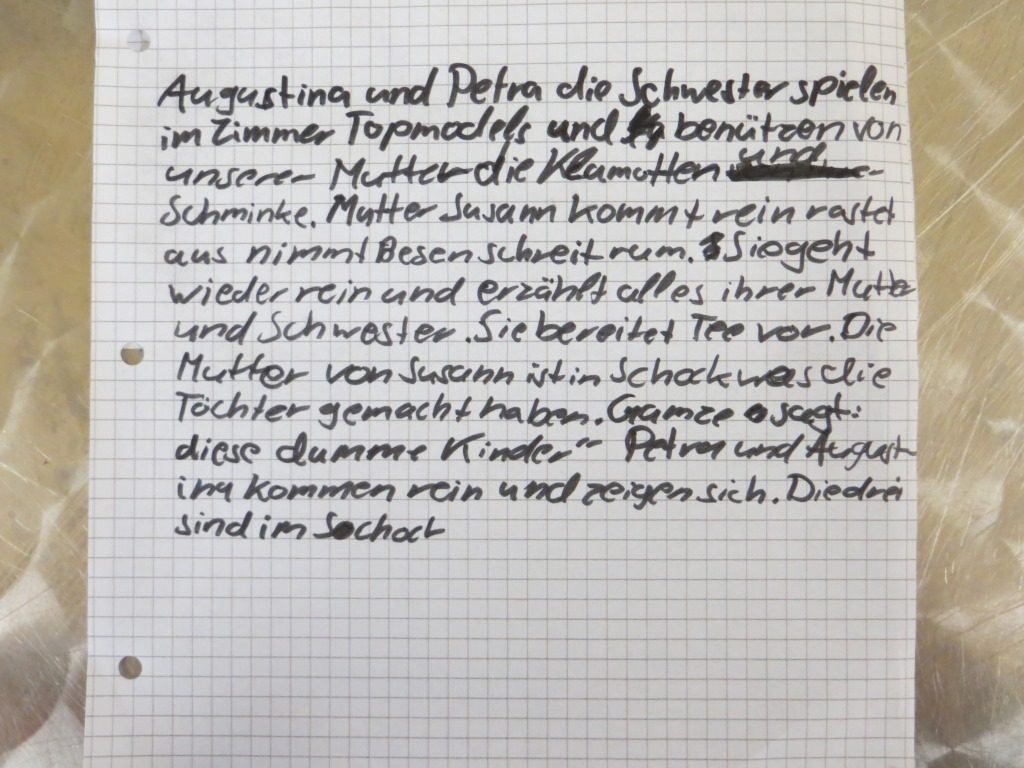 Augustina und Petra die Schwester spielen
im Zimmer Topmodels und benützen von
unserer Mutter die Klamotten und
Schminke. Mutter Susann kommt rein rastet
aus nimmt Besen schreit rum. Sie geht
wieder rein und erzählt alles ihrer Mutter
und Schwester. Sie bereitet Tee vor. Die
Mutter von Susann ist in Schock was die
Töchter gemacht haben. Gamze sagt:
diese dumme Kinder" Petra und August-
ina kommen rein und zeigen sich. Die drei
sind im Schock